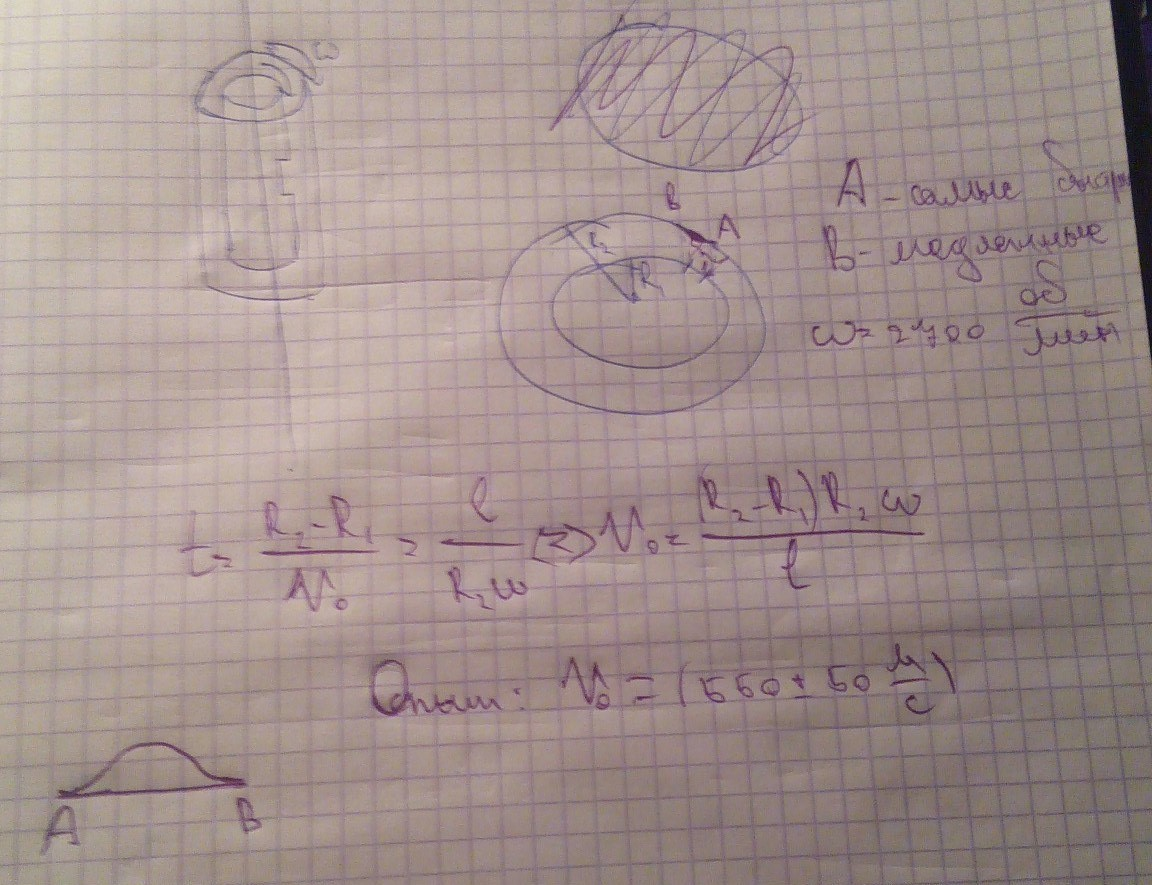 ω
B
A
R₂
R₁
A - самые быстр
B - медленные
ω = 2700 об/мин
t = (R₂-R₁)/V₀ = l/(R₂ω) <=> V₀ = (R₂-R₁)R₂ω/l
Опыт: V₀ = (550 ± 50 м/с)
A B